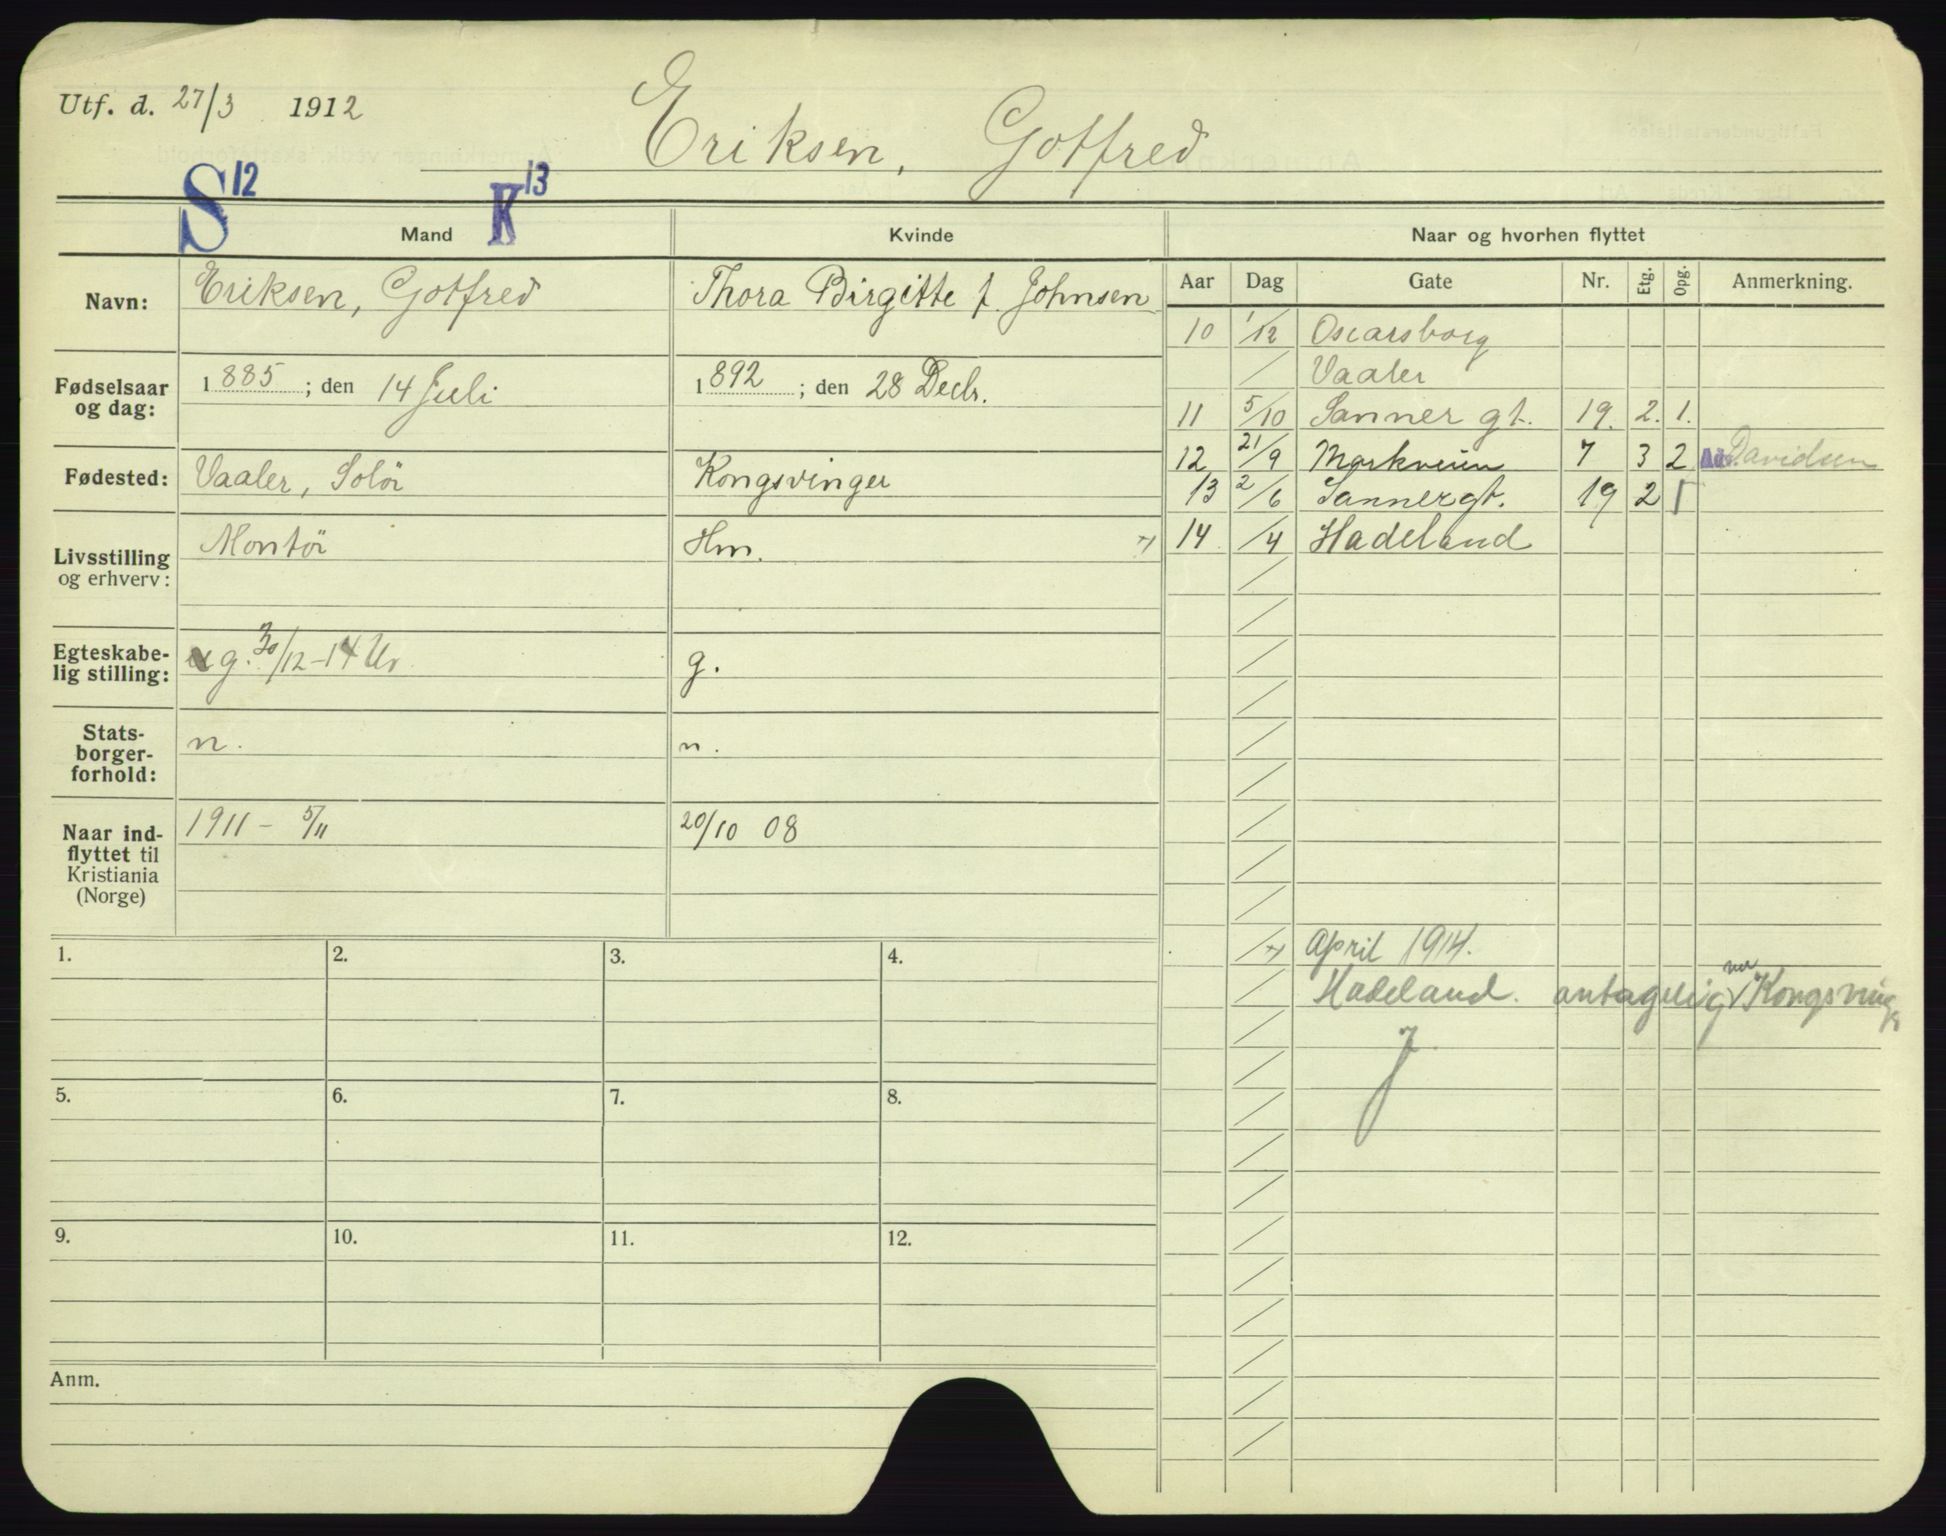 Utf. d. 27/3 1912
Eriksen, Gotfred
S 12 K 13
Mand Kvinde Naar og hvorhen flyttet
Aar Dag Gate Nr. Etg. Opg. Anmerkning.
Navn: Eriksen, Gotfred Thora Birgitte f. Johnsen
Fødselsaar og dag: 1885; den 14 Juli 1892; den 28 Decbr.
Fødested: Vaaler, Solör Kongsvinger
Livsstilling og erhverv: Montör Hm.
Egteskabelig stilling: g. 30/12-14 Ur. g.
Statsborgerforhold: n. n.
Naar indflyttet til Kristiania (Norge) 1911 - 5/11 20/10 08
10 1/12 Oscarsborg
Vaaler
11 5/10 Sanner gt. 19. 2. 1.
12 21/9 Markveien 7 3 2 Davidsen
13 2/6 Sannergt. 19 2 1
14 /4 Hadeland
April 1914.
Hadeland. antagelig Kongsvinger
1. 2. 3. 4.
5. 6. 7. 8.
9. 10. 11. 12.
Anm.